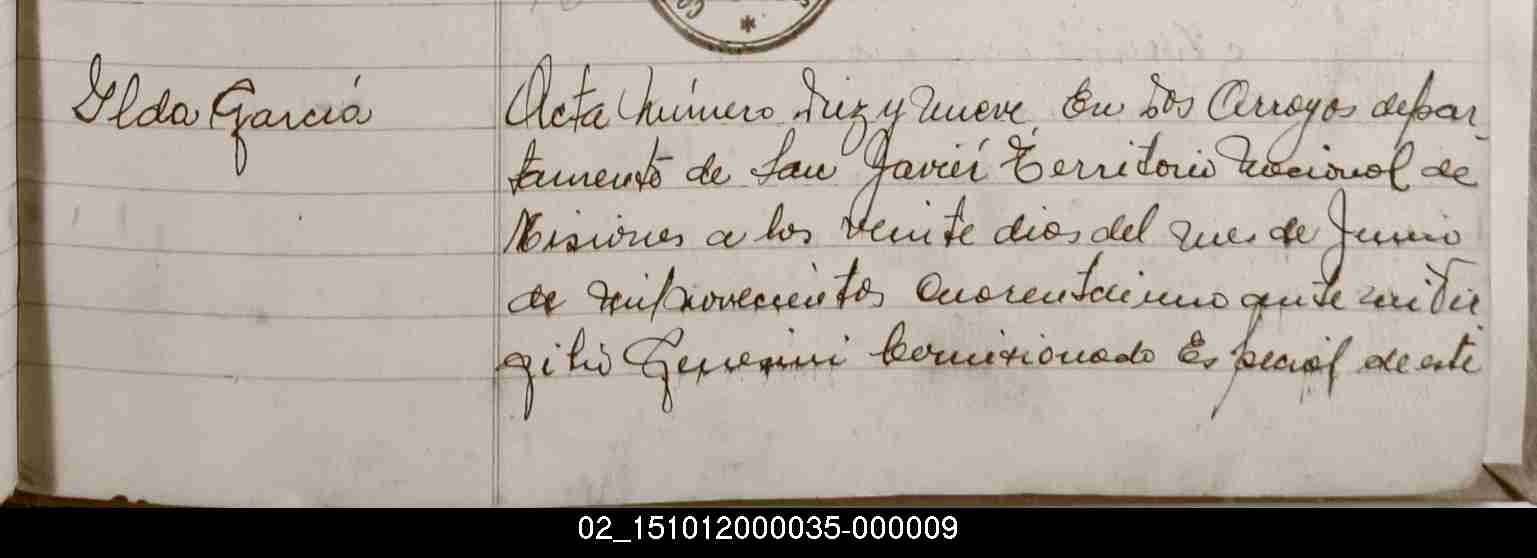 Ilda García
Acta Número Diez y nueve En Dos Arroyos depar-
tamento de San Javiér Territorio Nacional de
Misiones a los veinte dias del mes de Junio
de mil novecientos cuarentaiuno ante mi Vir
gilio Comisionado Especial de este
02_151012000035-000009